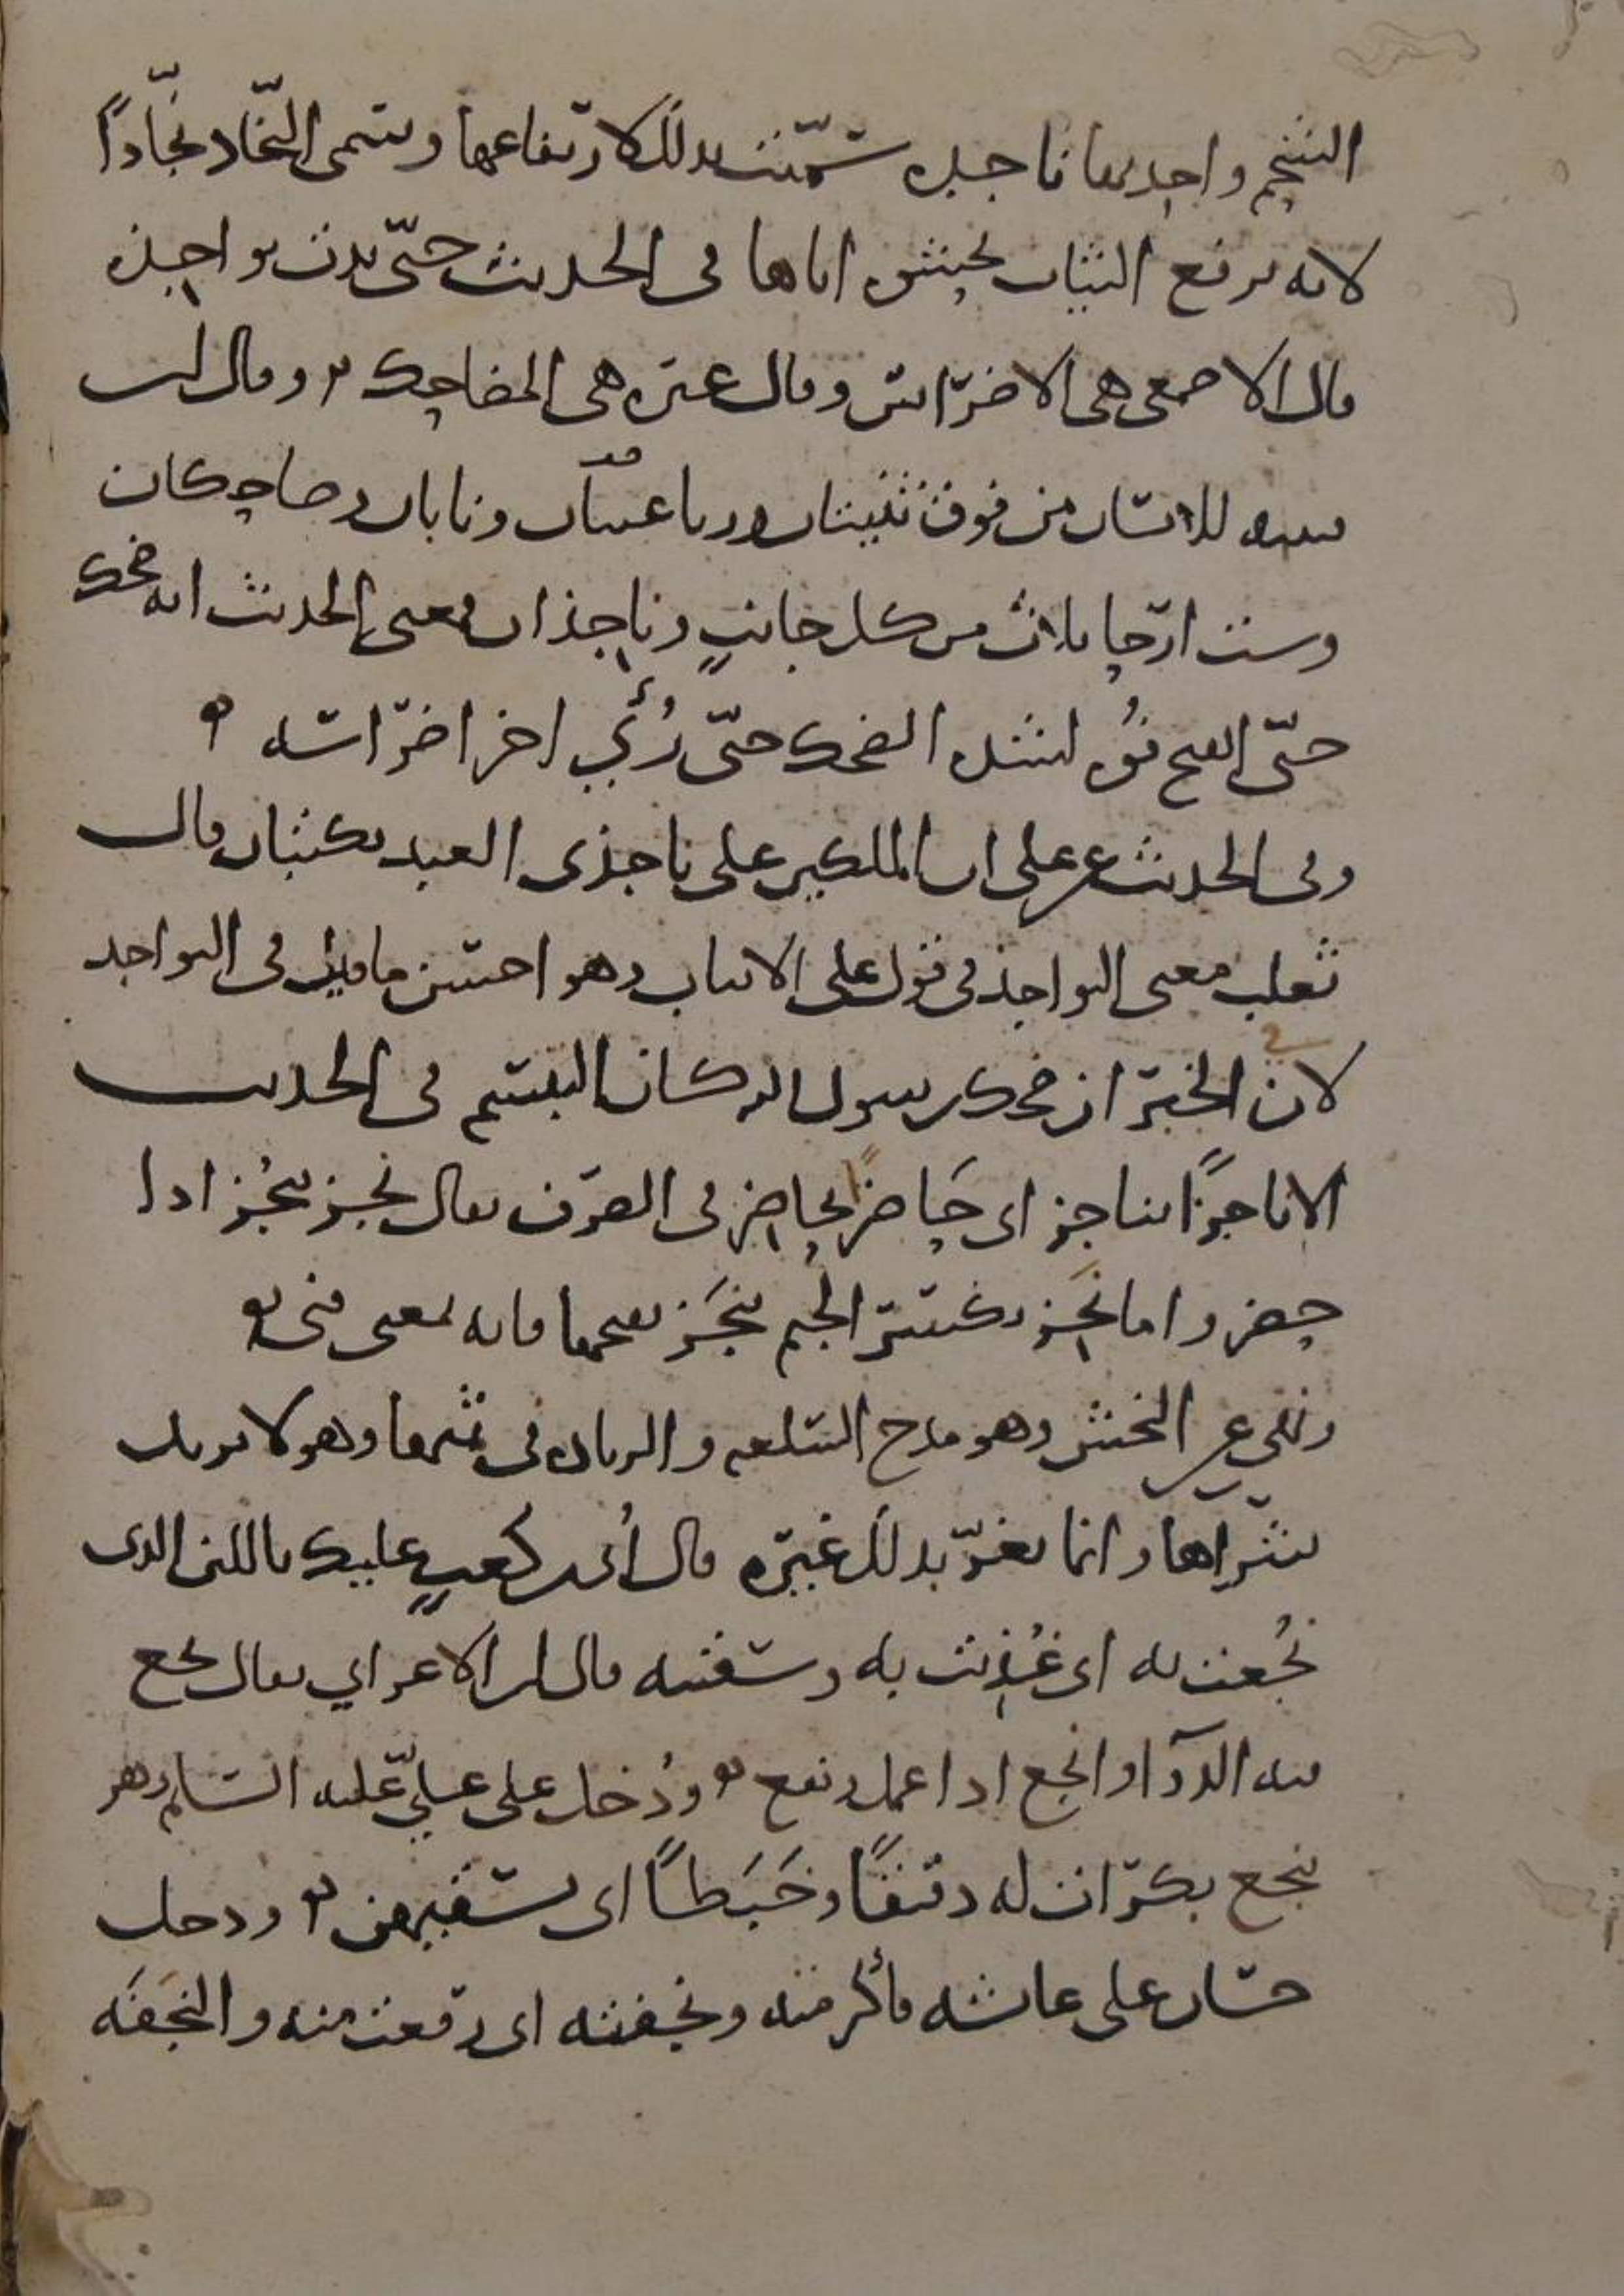 الشحم واحدتها ناجده سمّيت بذلك لارتفاعها وسمى النجّاد نجّاداً
لانه يرفع الثياب بحشوه اياها في الحديث حتّى بدت نواجذه
قال الاصمعي هي الاضراس وقال غيره هي المضاحك وقال ابن
قتيبه للانسان من فوق ثنيتان ورباعيتان ونابان وضاحكان
وست ارحا ثلاث من كل جانبٍ وناجذان فمعنى الحديث انه ضحك
حتّى انفتح فوه لشده الضحك حتّى رُئي اخر اضراسه
وفي الحديث عن على ان الملكين على ناجذى العبد يكتبان قال
ثعلب معنى النواجذ في قول على الانياب وهو احسن ما قيل في النواجد
لان في الخبر ان ضحك رسول الله كان التبسم في الحديث
الا ناجزًا بناجز اى حَاضرًا بحاضر في الصرف يقال نجز ينجُز اذا
حضر واما نَجِز بكسر الجيم ينجَز بفتحها فانه بمعنى فنى
ونهي عن النجش وهو مدح السلعه والزياده في ثمنها وهو لا يريد
شراها وانما يغرّ بذلك غيره قال أُبى بن كعبٍ عليك باللبن الذى
نُجعت به اى غُذِيت به وسقيته قال ابن الاعرابي يقال نجع
فيه الدوآ او انجع اذا عمل ونفع ودُخل على عليّ عليه السلم وهو
ينجع بكرات له دقيقًا وخَبَطاً اى يسقيهن ودخل
حسّان على عائشه فأكرمته ونجفته اى رفعت منه والنَجَفَه